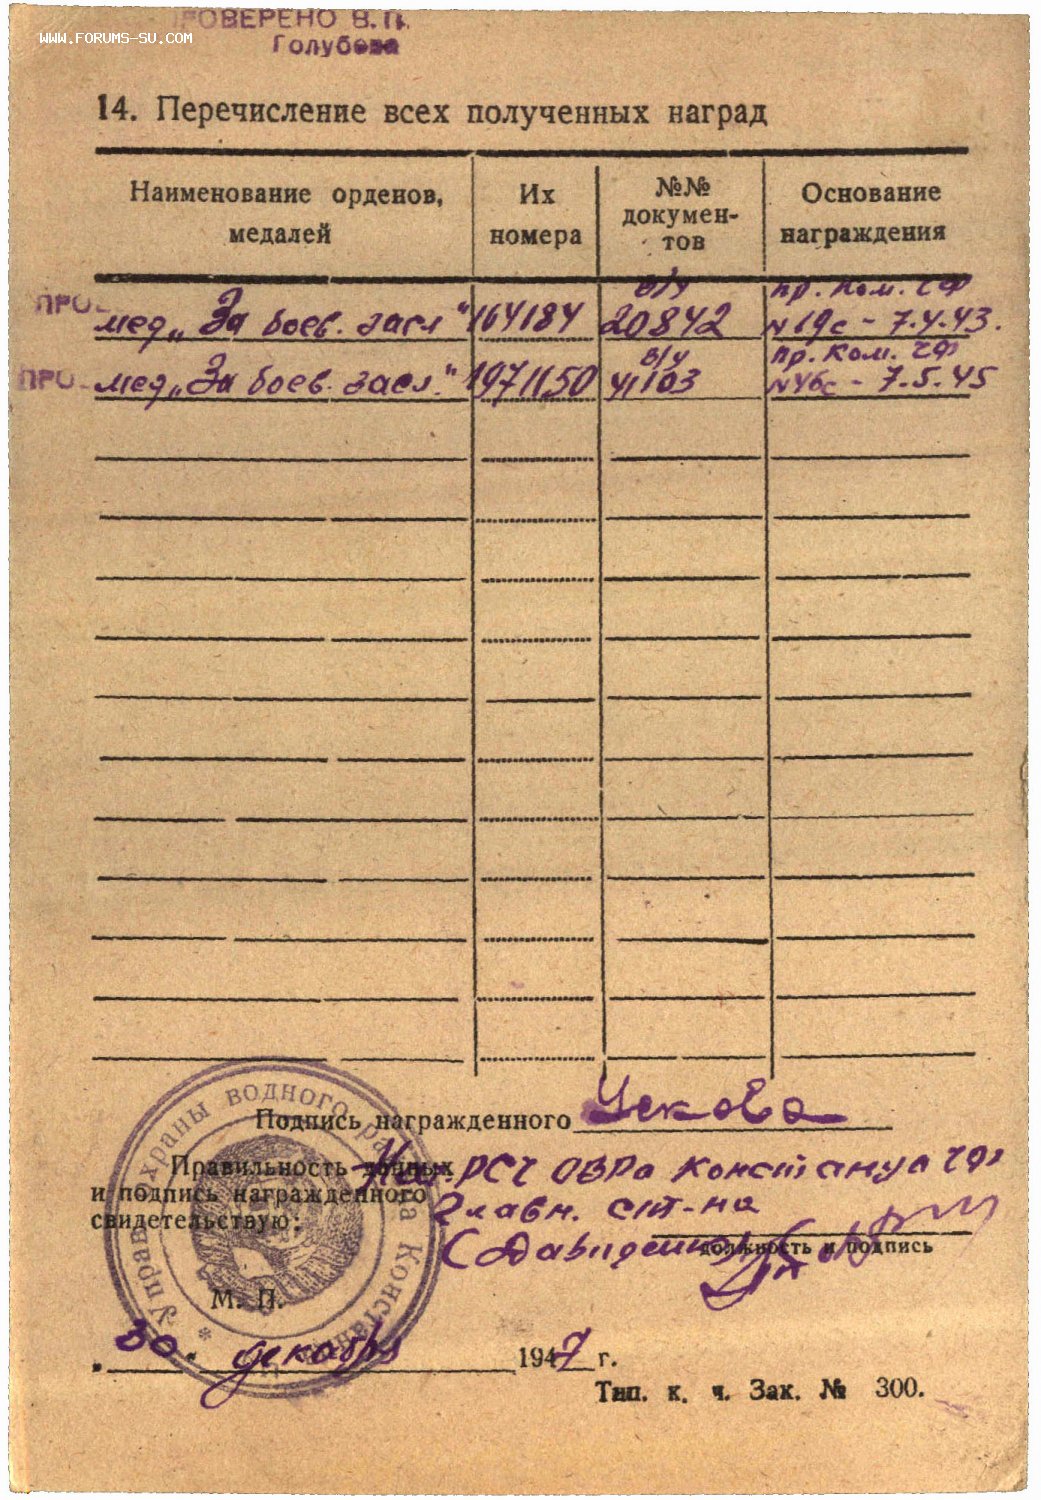 ПРОВЕРЕНО В.П.
WWW.FORUMS-SU.COM
Голубева
14. Перечисление всех полученных наград
Наименование орденов, медалей
Их номера
№№ докумен-тов
Основание награждения
ПРО
мед „За боев. засл" 164184 в/у 20842 пр. Ком. ЧФ N19с - 7.4.43.
ПРО
мед „За боев. засл." 1971150 в/у 41103 пр. Ком. ЧФ N46с - 7.5.45
Подпись награжденного Ускова
Правильность данных
и подпись награжденного
свидетельствую:
Нач. РСЧ ОВРа Констанца ЧФ
Главн. ст-на
должность и подпись
Управ охраны водного района Констанца
М. П.
30 декабря 1947 г.
Тип. к. ч. Зак. № 300.